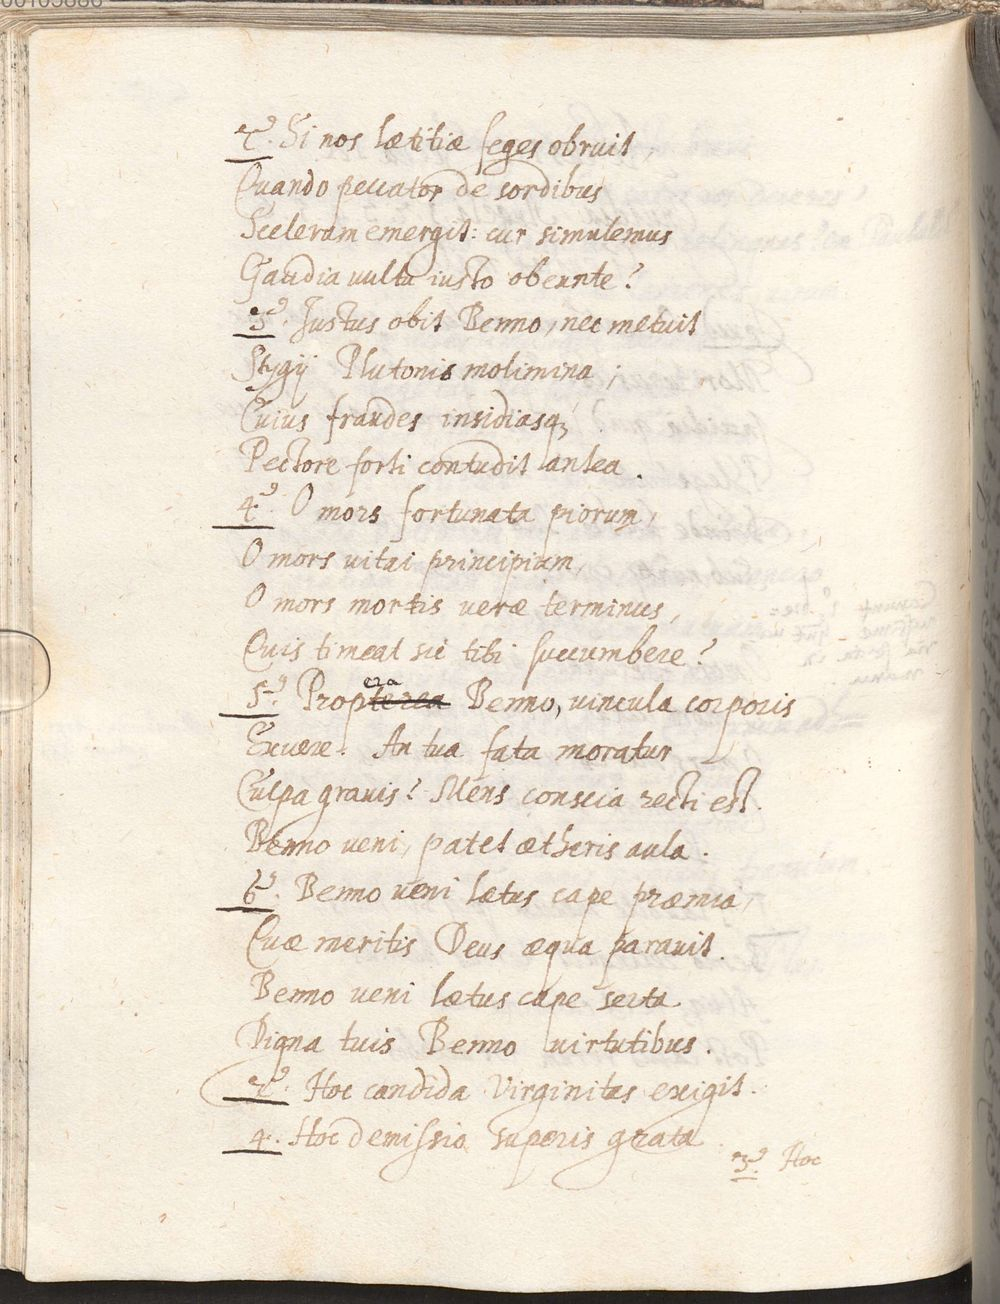 2.us Si nos lætitiæ seges obruit,
Quando peccator de sordibus
Scelerum emergit: cur simulemus
Gaudia vultu iusto obeunte?
3.us Justus obit Benno, nec metuit
Stygij Plutonis molimina;
Cuius fraudes insidiasq;
Pectore forti contudit antea.
4.us O mors fortunata piorum,
O mors vitai principium,
O mors mortis veræ terminus,
Quis timeat sic tibi succumbere?
5.us Propterea era Benno, vincula corporis
Exuere. An tua fata moratur
Culpa gravis? Mens conscia recti est.
Benno veni, patet ætheris aula.
6.us Benno veni lætus cape præmia,
Quæ meritis Deus æqua paravit.
Benno veni lætus cape serta
Digna tuis Benno virtutibus.
2.us Hoc candida Virginitas exigit.
4. Hoc demissio superis grata
3.us Hoc